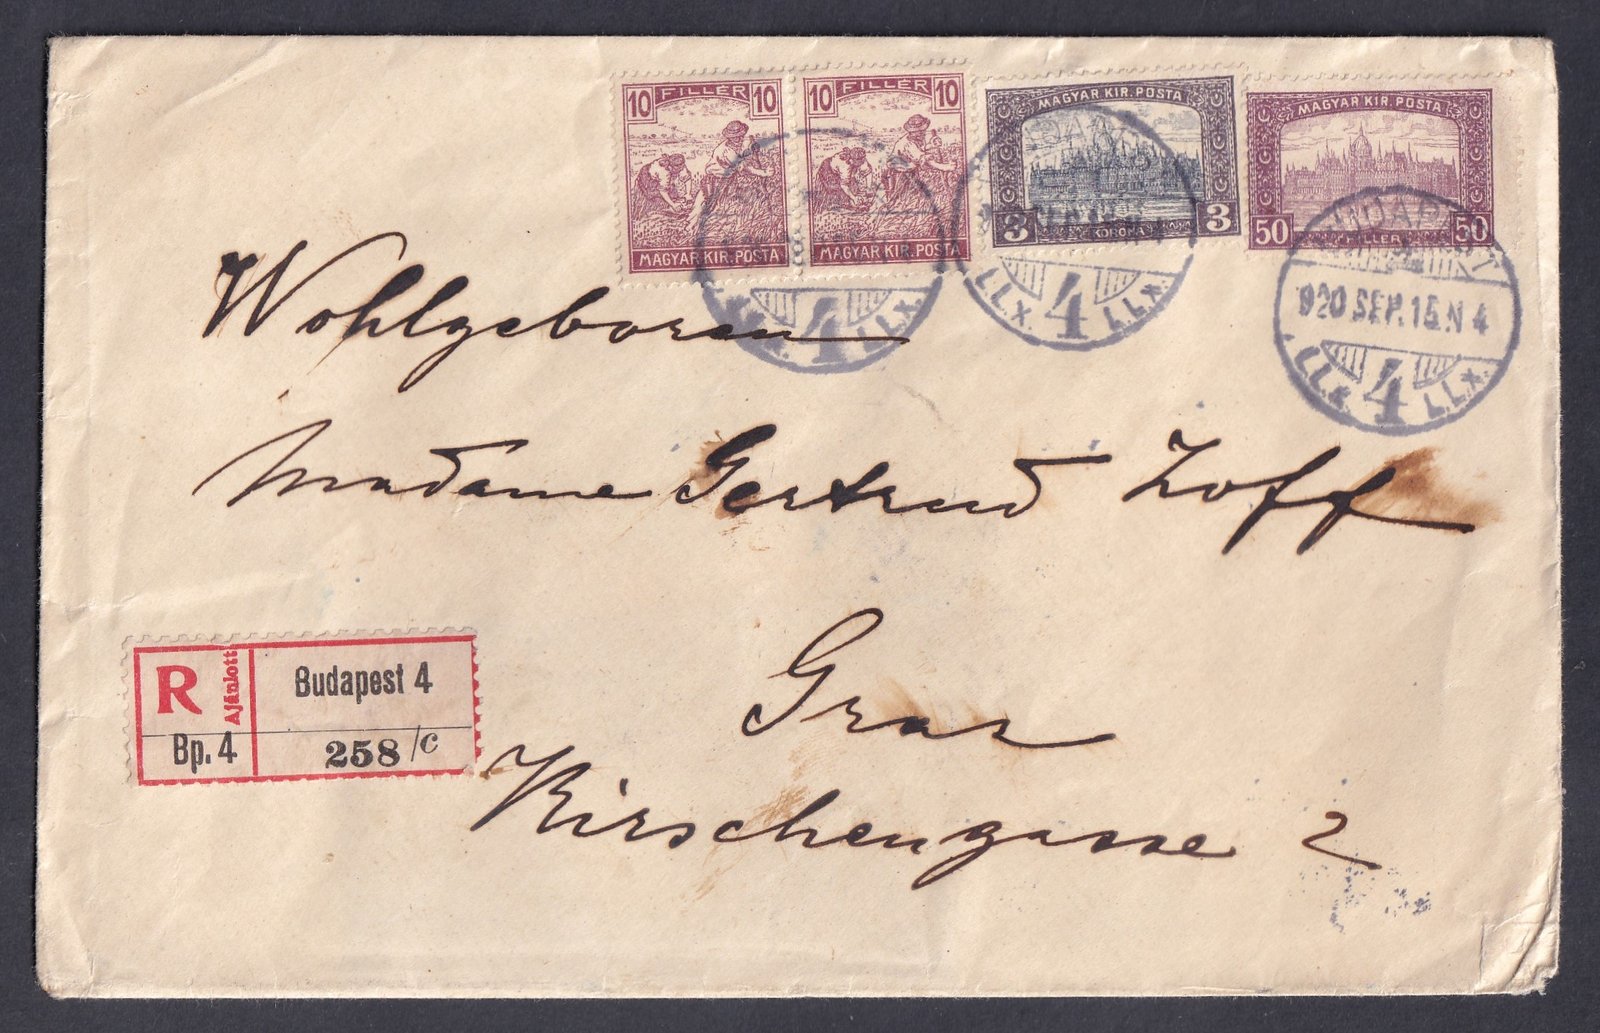 10 FILLÉR 10
MAGYAR KIR. POSTA
10 FILLÉR 10
MAGYAR KIR. POSTA
MAGYAR KIR. POSTA
3 KORONA 3
MAGYAR KIR. POSTA
50 FILLÉR 50
4 LL*.
LL*. 4 LL*.
BUDAPEST
920 SEP. 15 N 4
LL*. 4 LL*.
Wohlgeboren
Madame Gertrud Zoff
Graz
Kirschengasse 2
R Ajánlott
Budapest 4
Bp. 4
258/c